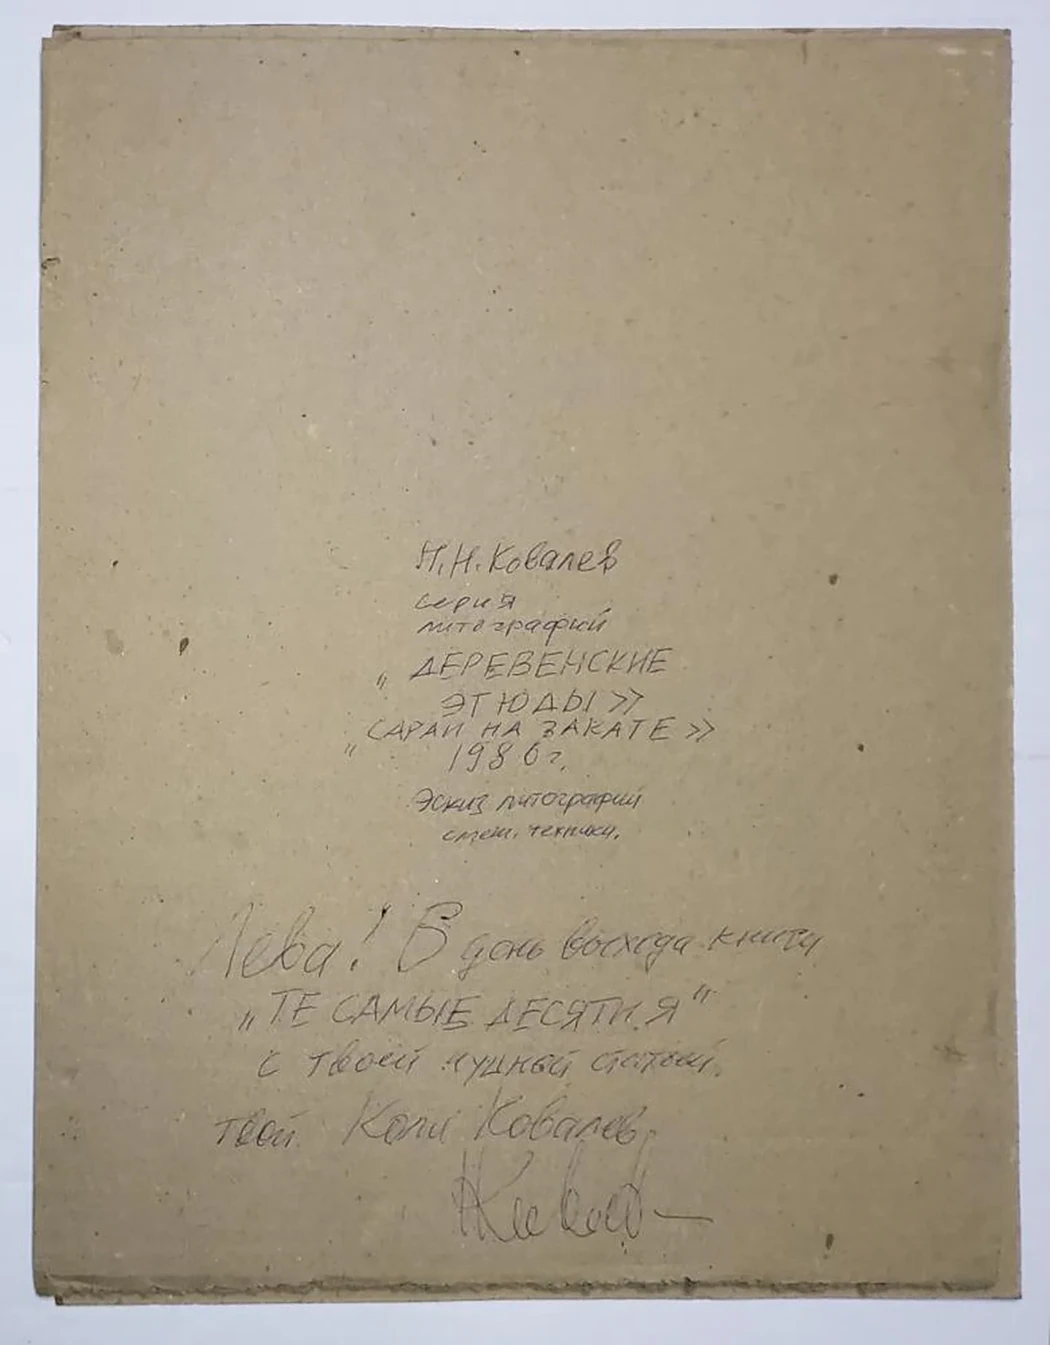 Н.Н. Ковалев
серия
литографий
„ДЕРЕВЕНСКИЕ
ЭТЮДЫ»
„САРАИ НА ЗАКАТЕ»
1986г.
Эскиз литографий
смеш. техника.
Лева! В день выхода книги
„ТЕ САМЫЕ ДЕСЯТИЯ"
с твоей статьей.
твой Коля Ковалев